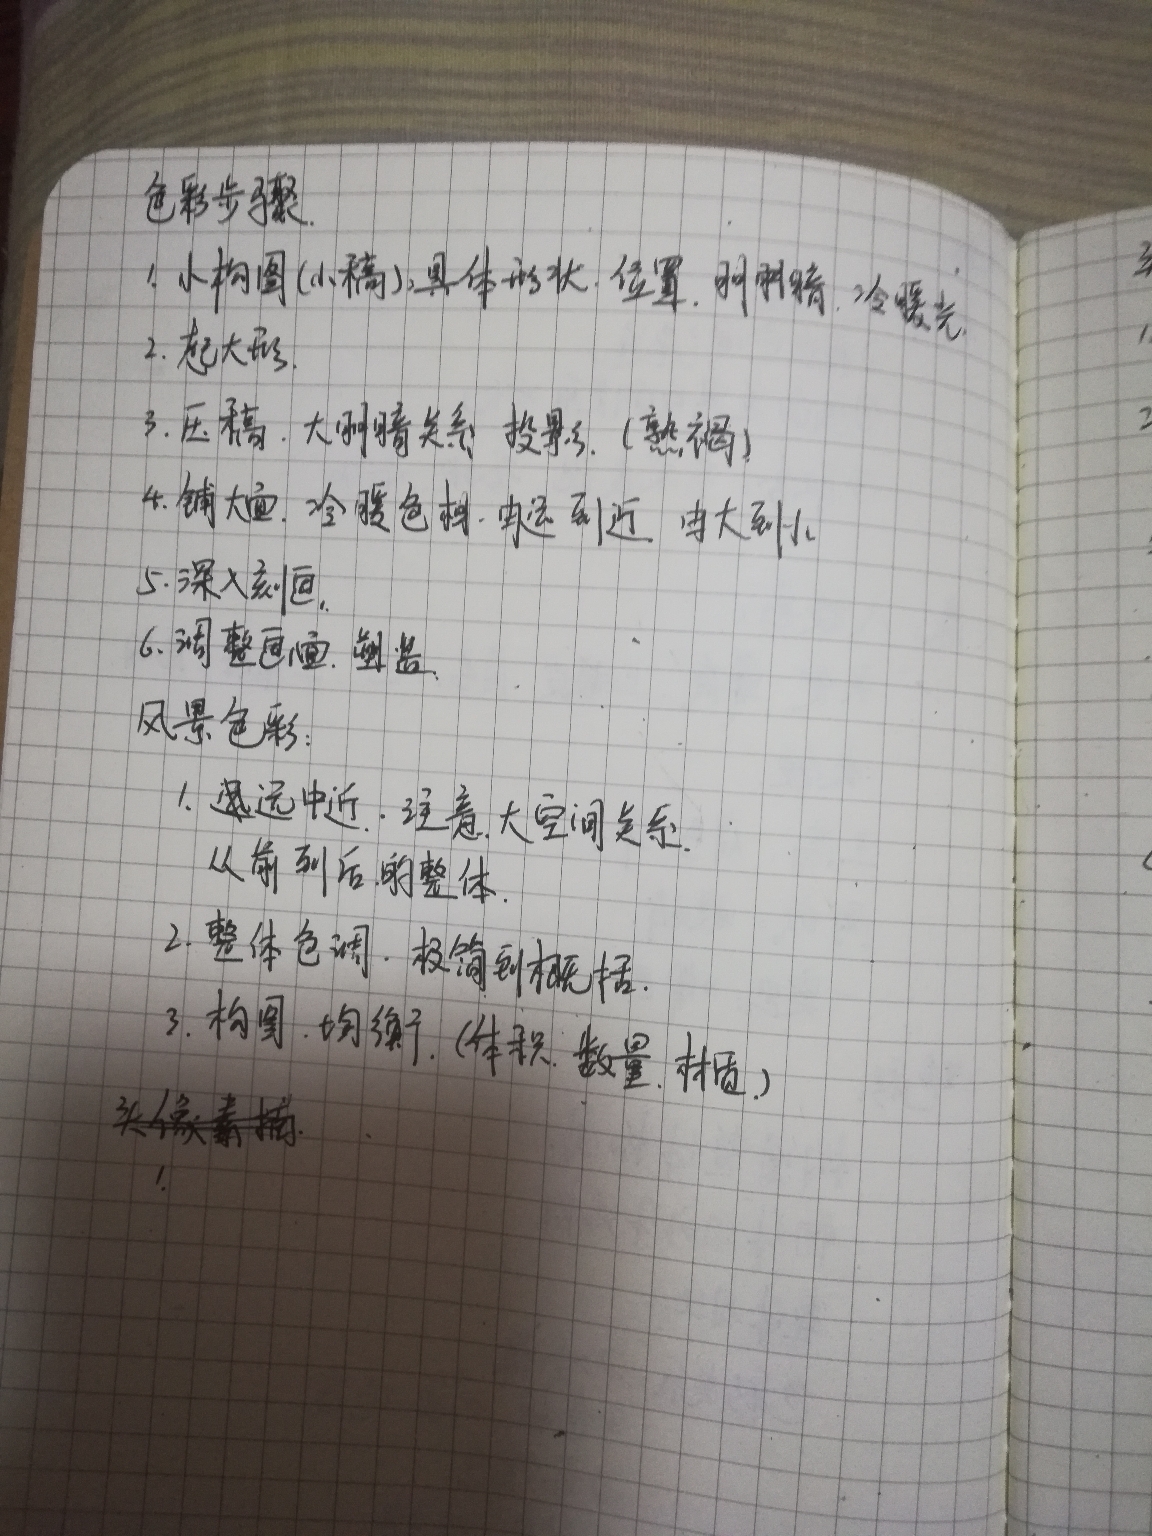 色彩步骤.
1. 小构图(小稿),具体形状.位置.明明暗.冷暖光.
2. 起大形.
3. 压稿.大明暗关系 投影.(熟褐)
4. 铺大面.冷暖色相.由远到近 由大到小
5. 深入刻画.
6. 调整画面.塑造.
风景色彩:
1. 远中近.注意.大空间关系.
从前到后的整体.
2. 整体色调.极简到概括.
3. 构图.均衡.(体积.数量.材质.)
头像素描.
1.
1.
2